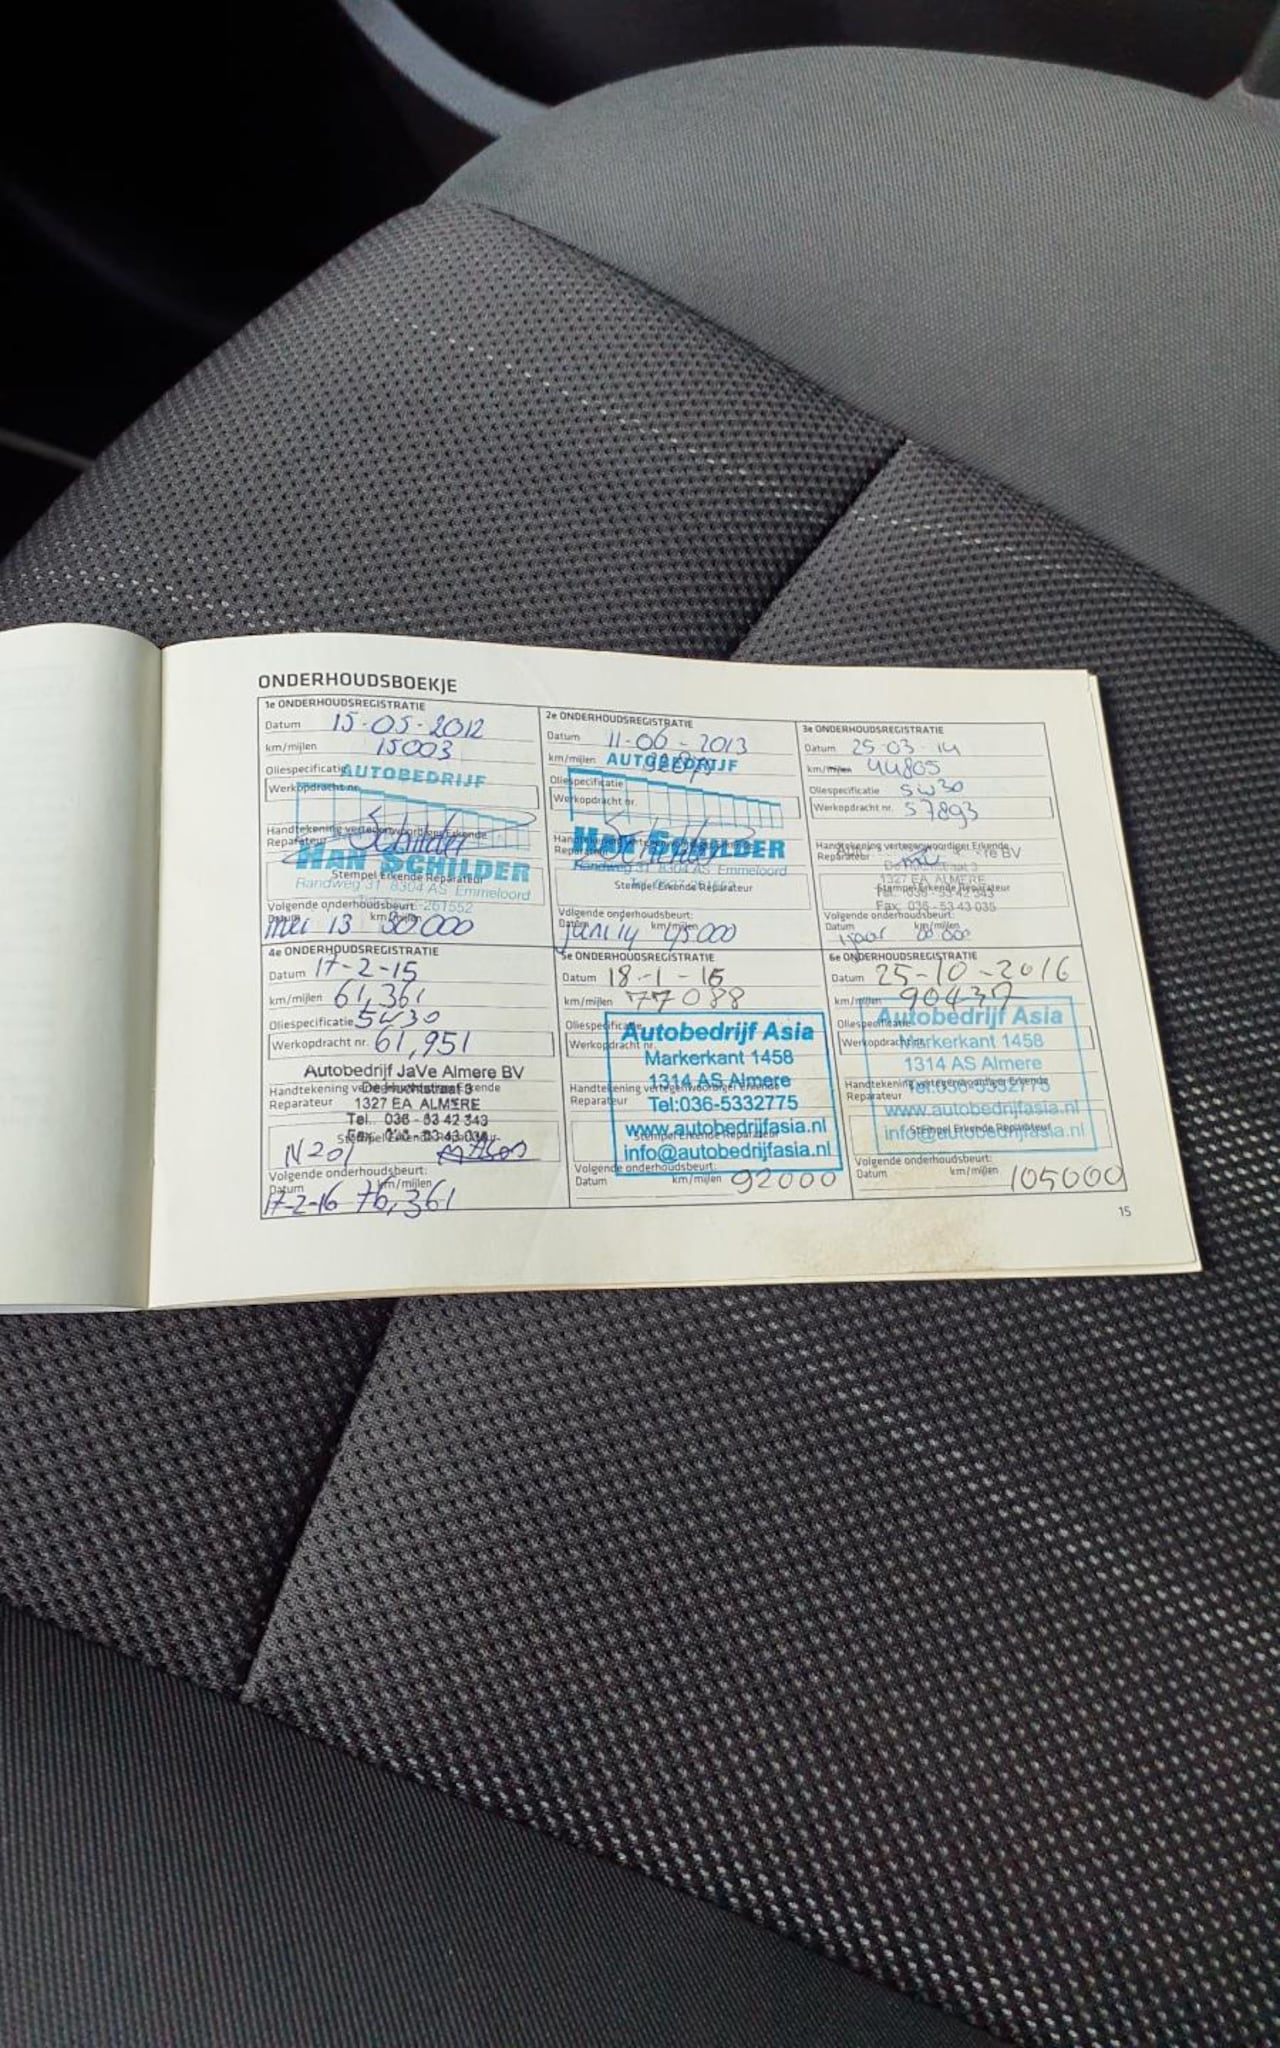 ONDERHOUDSBOEKJE
1e ONDERHOUDSREGISTRATIE
Datum 15-05-2012
km/mijlen 15003
Oliespecificatie
AUTOBEDRIJF
Werkopdracht nr.
Handtekening vertegenwoordiger Erkende
Reparateur Schilder
HAN SCHILDER
Stempel Erkende Reparateur
Randweg 31 8304 AS Emmeloord
Volgende onderhoudsbeurt: -261552
Datum km/mijlen
mei 13 30000
2e ONDERHOUDSREGISTRATIE
Datum 11-06-2013
km/mijlen
AUTOBEDRIJF
Oliespecificatie
Werkopdracht nr.
Handtekening vertegenwoordiger Erkende
Reparateur Schilder
HAN SCHILDER
Randweg 31 8304 AS Emmeloord
Stempel Erkende Reparateur
Volgende onderhoudsbeurt:
Datum km/mijlen
juni 14 45000
3e ONDERHOUDSREGISTRATIE
Datum 25-03-14
km/mijlen 44805
Oliespecificatie 5w30
Werkopdracht nr. 57893
Handtekening vertegenwoordiger Erkende
Reparateur BV
1327 EA ALMERE
Stempel Erkende Reparateur
Tel. 036 - 53 42 343
Fax: 036 - 53 43 035
Volgende onderhoudsbeurt:
Datum km/mijlen
1 jaar
4e ONDERHOUDSREGISTRATIE
Datum 17-2-15
km/mijlen 61,361
Oliespecificatie 5w30
Werkopdracht nr. 61,951
Autobedrijf JaVe Almere BV
Handtekening vertegenwoordiger Erkende
Reparateur 1327 EA ALMERE
Tel. 036 - 53 42 343
Stempel Erkende Reparateur
N201
Volgende onderhoudsbeurt:
Datum km/mijlen
17-2-16 76,361
5e ONDERHOUDSREGISTRATIE
Datum 18-1-16
km/mijlen 77088
Oliespecificatie
Autobedrijf Asia
Werkopdracht nr.
Markerkant 1458
1314 AS Almere
Handtekening vertegenwoordiger Erkende
Reparateur Tel:036-5332775
www.autobedrijfasia.nl
Stempel Erkende Reparateur
info@autobedrijfasia.nl
Volgende onderhoudsbeurt:
Datum km/mijlen 92000
6e ONDERHOUDSREGISTRATIE
Datum 25-10-2016
km/mijlen 90437
Oliespecificatie
Autobedrijf Asia
Werkopdracht nr.
Markerkant 1458
1314 AS Almere
Handtekening vertegenwoordiger Erkende
Reparateur Tel:036-5332775
www.autobedrijfasia.nl
Stempel Erkende Reparateur
info@autobedrijfasia.nl
Volgende onderhoudsbeurt:
Datum km/mijlen 105000
15